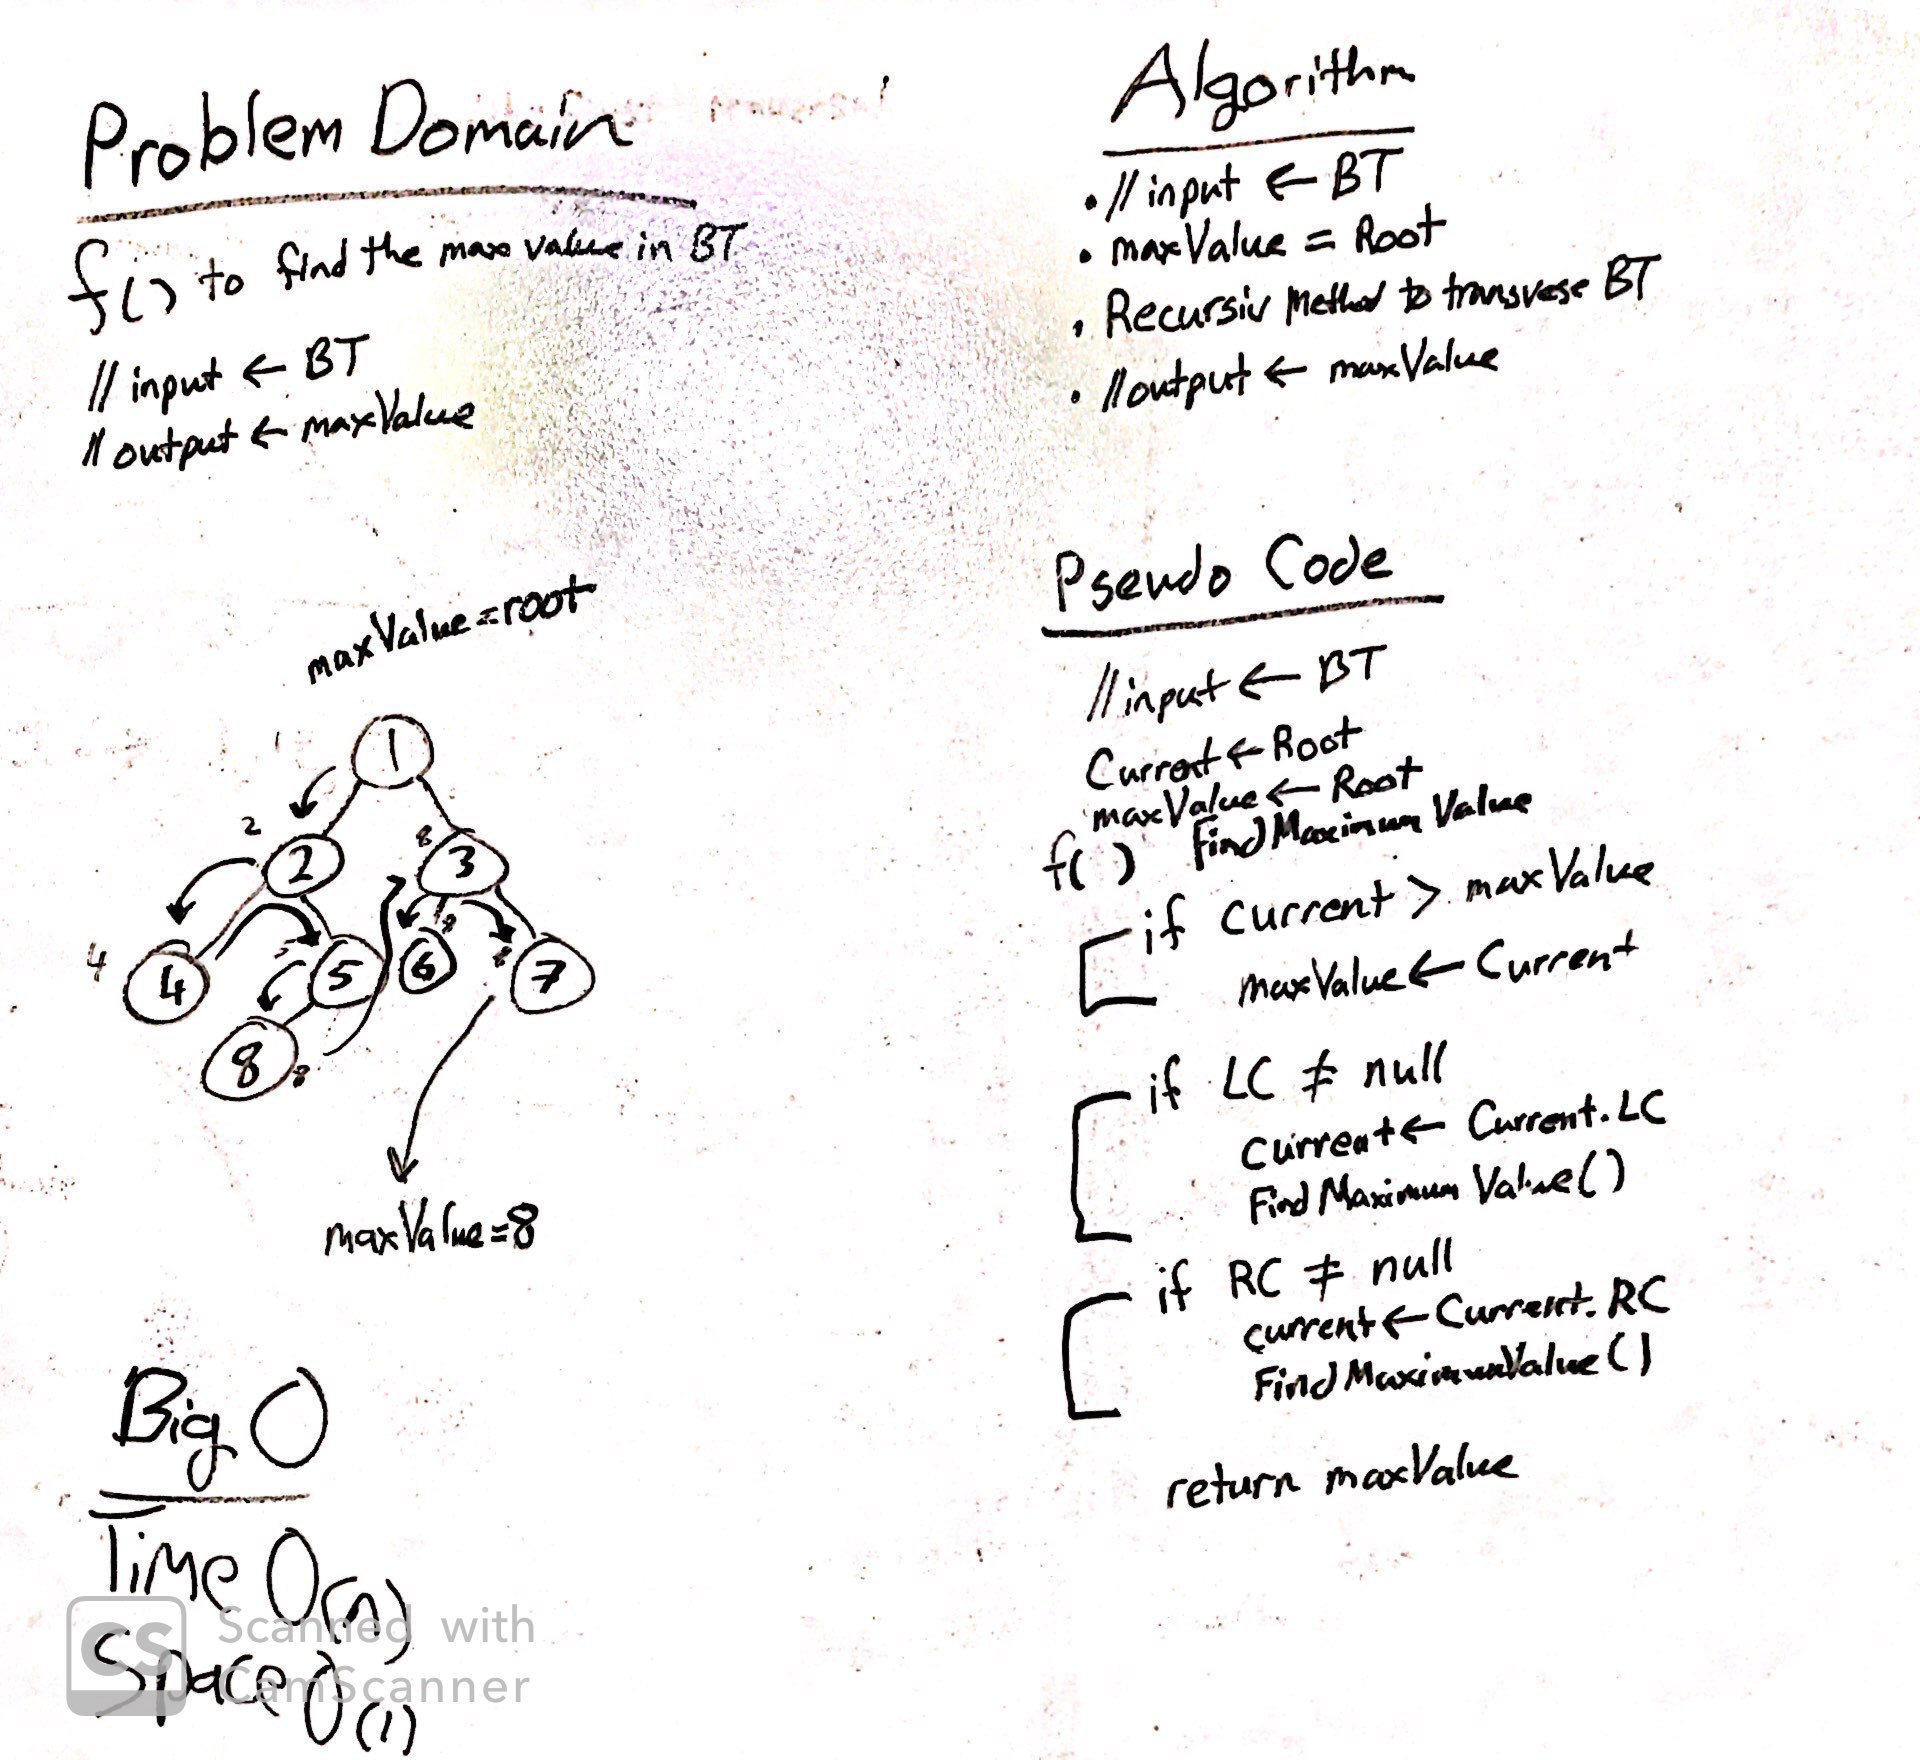 Problem Domain
f() to find the max value in BT
// input ← BT
// output ← maxValue
maxValue = root
1
2
2
8
3
4
4
5
6
7
8
8
maxValue = 8
Big O
Time O(n)
Space O(1)
Algorithm
• // input ← BT
• maxValue = Root
• Recursiv Method to transvese BT
• // output ← maxValue
Pseudo Code
// input ← BT
Current ← Root
maxValue ← Root
f( ) Find Maximum Value
if Current > maxValue
maxValue ← Current
if LC ≠ null
Current ← Current.LC
Find Maximum Value()
if RC ≠ null
current ← Current.RC
Find MaximumValue()
return maxValue
CS Scanned with
CamScanner